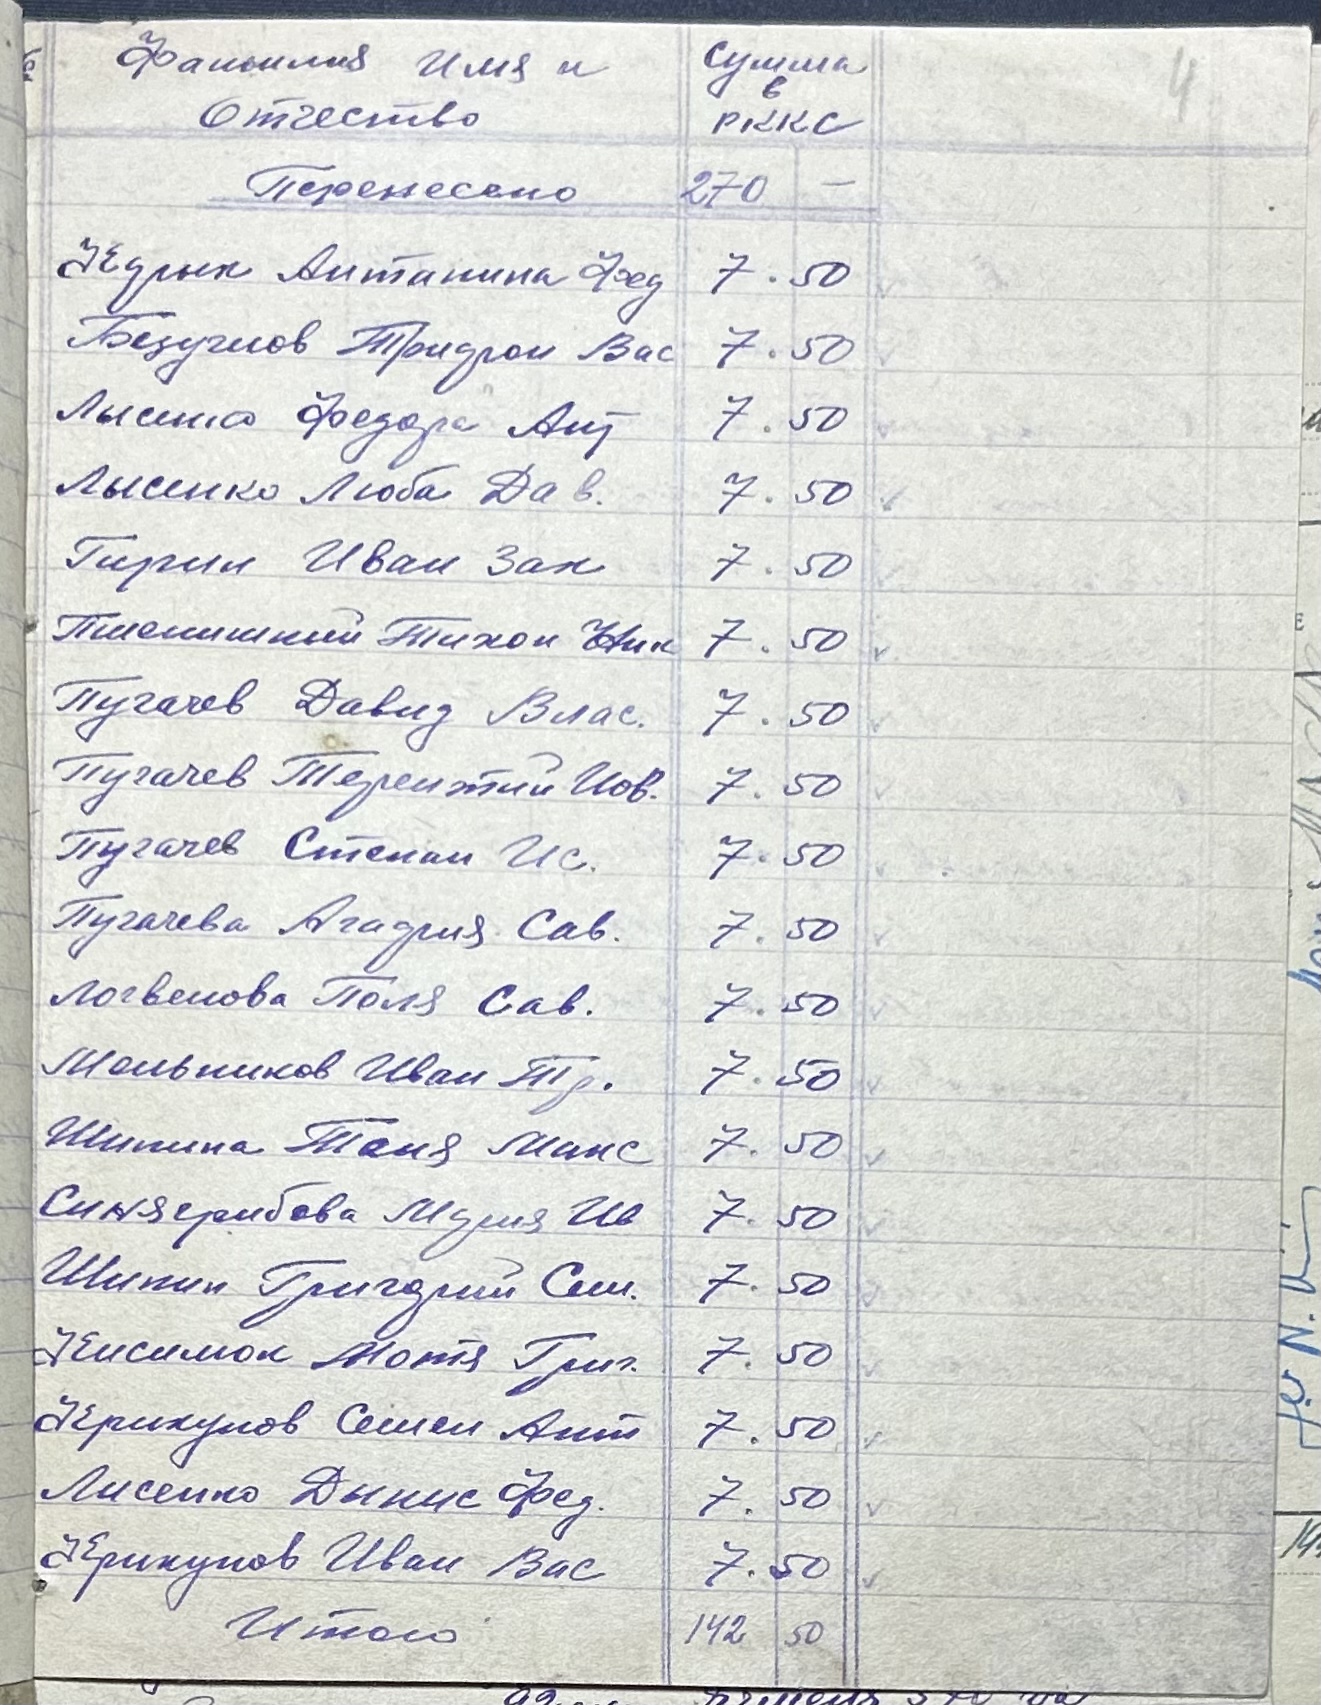 4
Фамилия Имя и Сумма
в
Отчество РККС
Перенесено 270 —
Антанина Фед 7.50
Безуглов Трифон Вас 7.50
Лысенко Федора Ант 7.50
Лысенко Люба Дав. 7.50
Гирин Иван Зах 7.50
Пшенишный Тихон Ник 7.50
Пугачев Давид Влас. 7.50
Пугачев Терентий Иов. 7.50
Пугачев Степан Ис. 7.50
Пугачева Агафия Сав. 7.50
Логвенова Поля Сав. 7.50
Мельников Иван Тр. 7.50
Шипина Таня Макс 7.50
Синягрибова Мария Ив 7.50
Шипин Григорий Сем. 7.50
Мотя Григ. 7.50
Крикунов Семен Ант 7.50
Лисенко Дынис Фед. 7.50
Крикунов Иван Вас 7.50
Итого 142 50